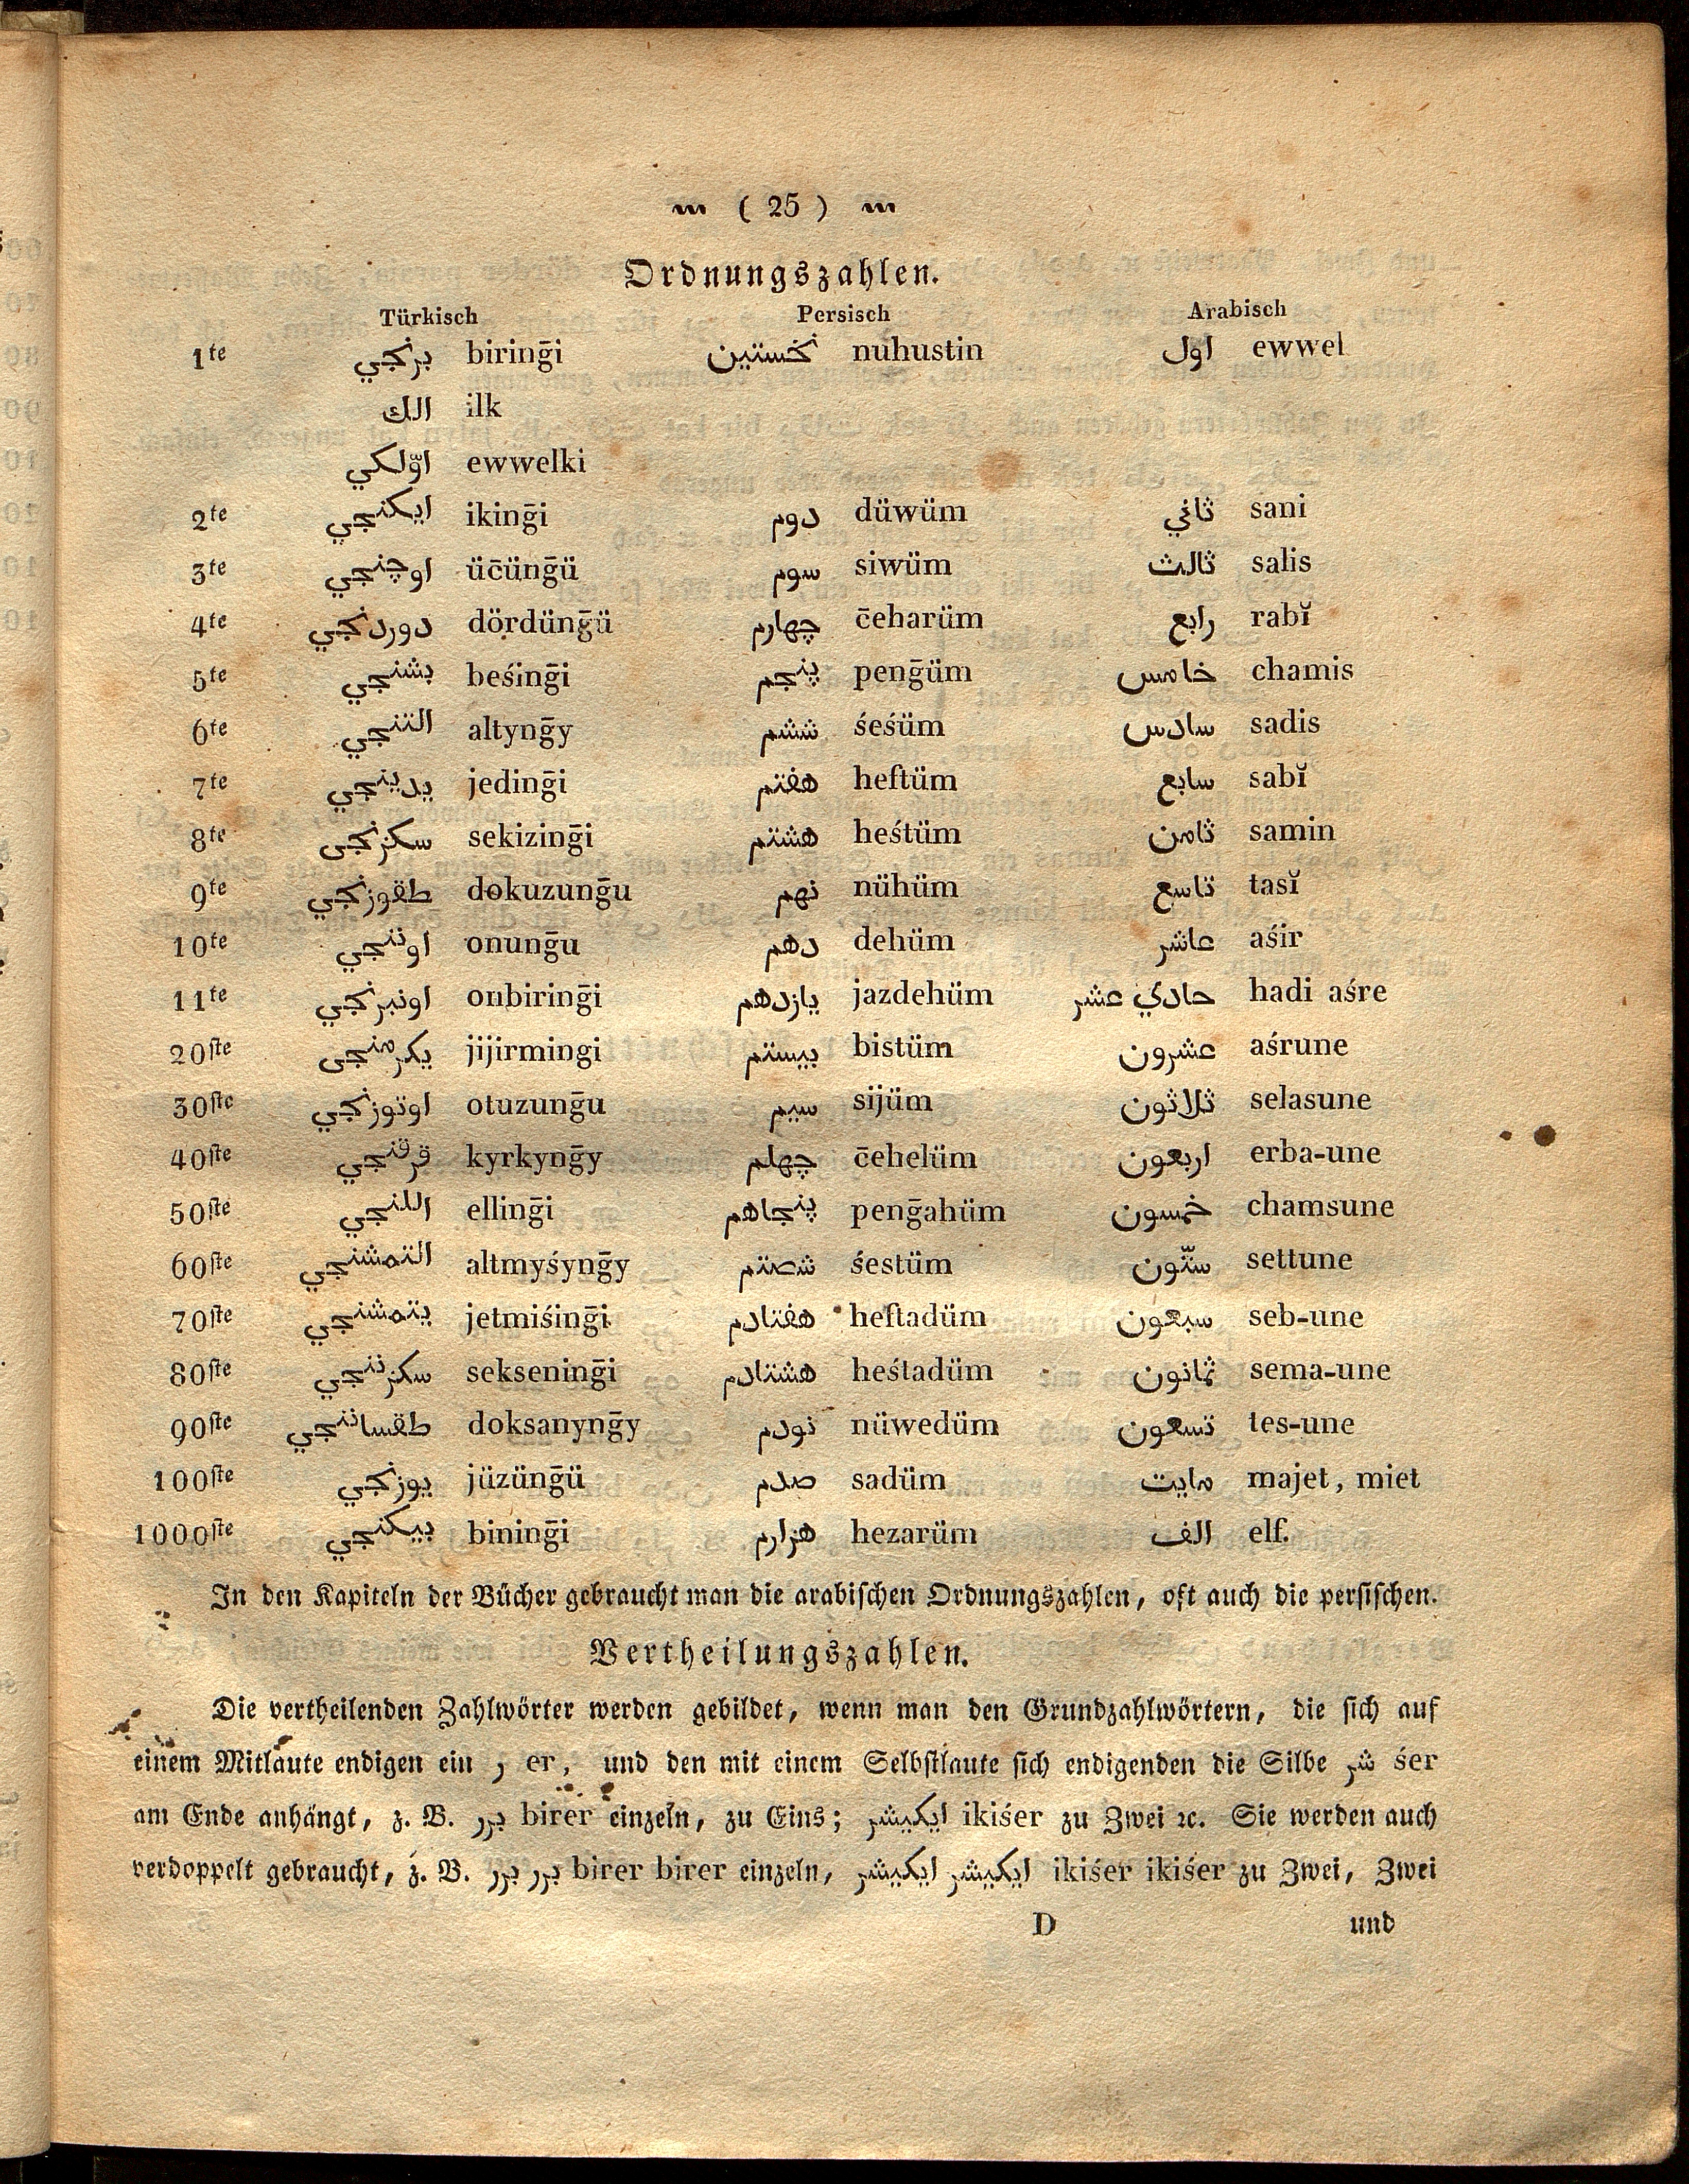 ( 25 )
Ordnungszahlen.
Türkisch Persisch Arabisch
1te برنجي biringḡi نخستين nuhustin اول ewwel
الك ilk
اوّلكي ewwelki
2te ايكنجي ikinḡi دوم düwüm ثاني sani
3te اوچنجي üc̄ünḡü سوم siwüm ثالث salis
4te دوردنجي dördünḡü چهارم c̄eharüm رابع rabĭ
5te بشنجي beśinḡi پنجم penḡüm خامس chamis
6te التنجي altynḡy ششم śeśüm سادس sadis
7te يدينجي jedinḡi هفتم heftüm سابع sabĭ
8te سكزنجى sekizinḡi هشتم heśtüm ثامن samin
9te طقوزنجي dokuzunḡu نهم nühüm تاسع tasĭ
10te اوننجي onunḡu دهم dehüm عاشر aśir
11te اونبرنجي onbirinḡi يازدهم jazdehüm حادي عشر hadi aśre
20ste يكرمنجى jijirmingi بيستم bistüm عشرون aśrune
30ste اوتوزنجي otuzunḡu سيم sijüm ثلاثون selasune
40ste قرقنجي kyrkynḡy چهلم c̄ehelüm اربعون erba-une
50ste اللنجي ellinḡi پنجاهم penḡahüm خمسون chamsune
60ste التمشنجي altmyśynḡy شصتم śestüm ستّون settune
70ste يتمشنجي jetmiśinḡi هفتادم heftadüm سبعون seb-une
80ste سكزننجي sekseninḡi هشتادم heśtadüm ثمانون sema-une
90ste طقساننجي doksanynḡy نودم nüwedüm تسعون tes-une
100ste يوزنجي jüzünḡü صدم sadüm مايت majet, miet
1000ste بيكنجي bininḡi هزارم hezarüm الف elf.
In den Kapiteln der Bücher gebraucht man die arabischen Ordnungszahlen, oft auch die persischen.
Vertheilungszahlen.
Die vertheilenden Zahlwörter werden gebildet, wenn man den Grundzahlwörtern, die sich auf
einem Mitlaute endigen ein ر er, und den mit einem Selbstlaute sich endigenden die Silbe شر śer
am Ende anhängt, z. B. برر birer einzeln, zu Eins; ايكيشر ikiśer zu Zwei ꝛc. Sie werden auch
verdoppelt gebraucht, z. B. برر برر birer birer einzeln, ايكيشر ايكيشر ikiśer ikiśer zu Zwei, Zwei
D und